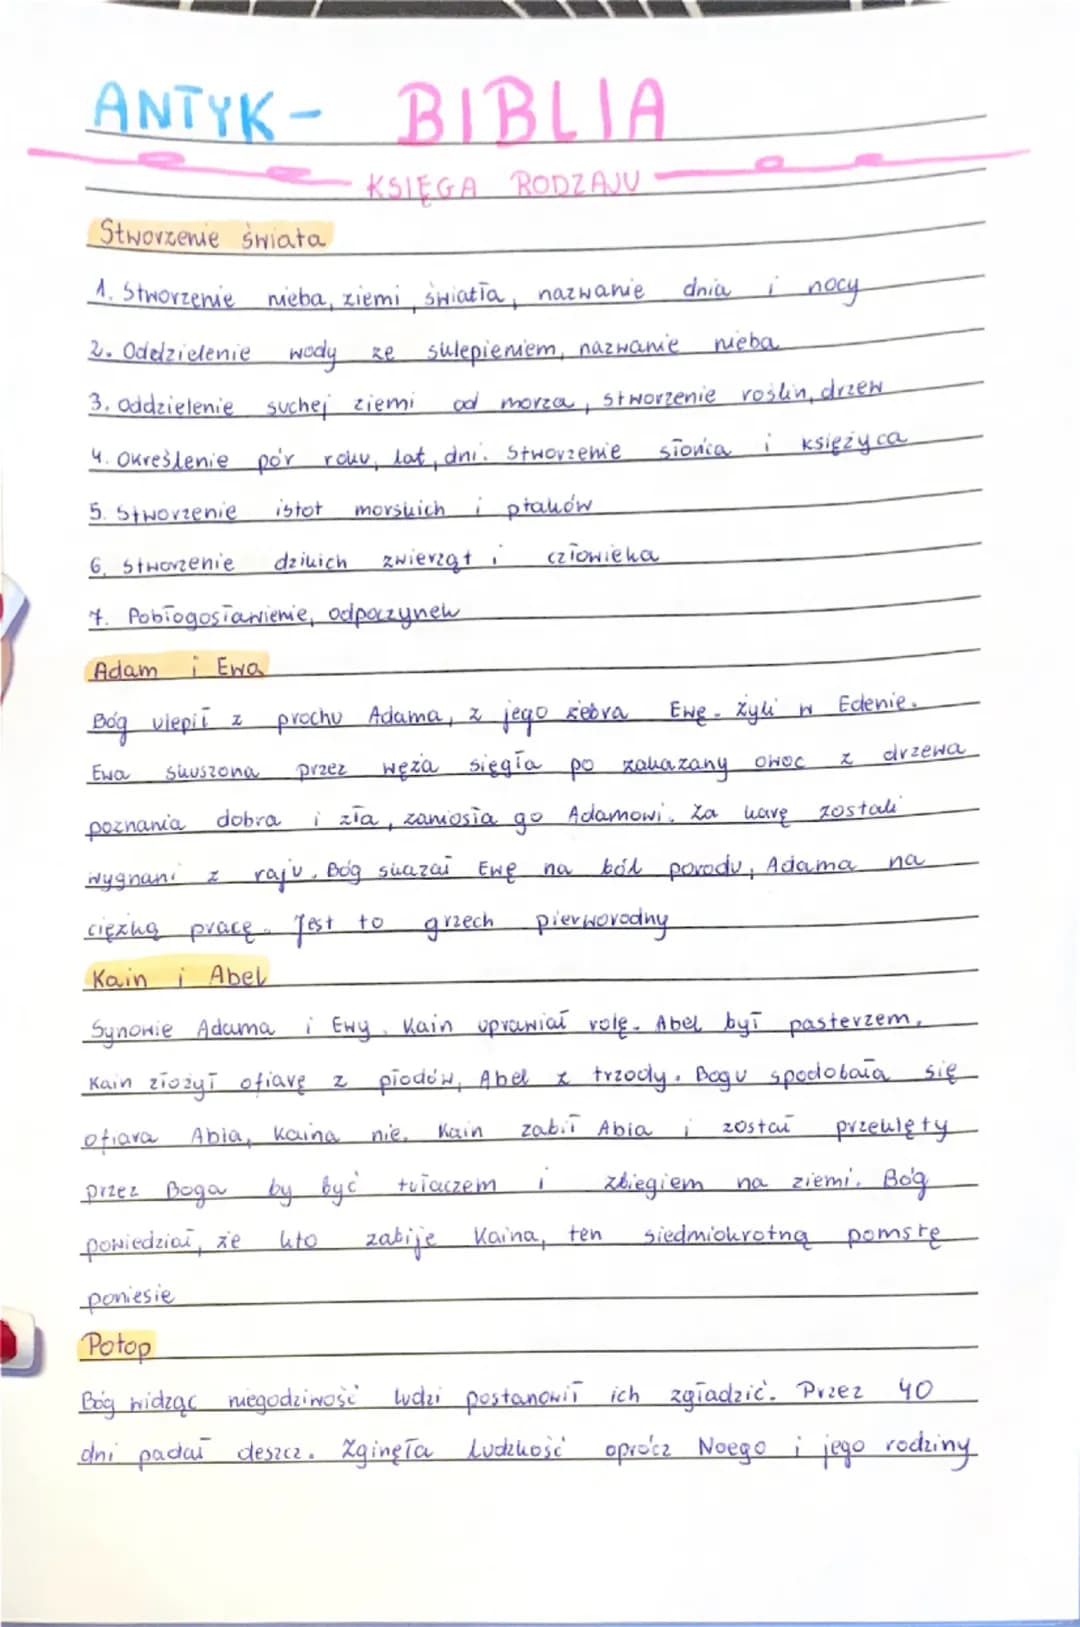 ANTYK- BIBLIA
KSIĘGA RODZAJU
Stworzenie świata
1. Stworzenie nieba, ziemi, światła, nazwanie dnia i nocy
2. Oddzielenie wody ze sklepieniem, nazwanie nieba
3. Oddzielenie suchej ziemi od morza, stworzenie roślin, drzew
4. Określenie pór roku, lat, dni. Stworzenie słońca i księżyca
5. Stworzenie istot morskich i ptaków
6. Stworzenie dzikich zwierząt i człowieka
7. Pobłogosławienie, odpoczynek
Adam i Ewa
Bóg ulepił z prochu Adama, z jego żebra Ewę. Żyli w Edenie.
Ewa skuszona przez węża sięgła po zakazany owoc z drzewa
poznania dobra i zła, zaniosła go Adamowi. Za karę zostali
wygnani z raju. Bóg skazał Ewę na ból porodu, Adama na
ciężką pracę. Jest to grzech pierworodny
Kain i Abel
Synowie Adama i Ewy. Kain uprawiał rolę. Abel był pasterzem.
Kain złożył ofiarę z płodów, Abel z trzody. Bogu spodobała się
ofiara Abla, Kaina nie. Kain zabił Abla i został przeklęty
przez Boga by być tułaczem i zbiegiem na ziemi. Bóg
powiedział, że kto zabije Kaina, ten siedmiokrotną pomstę
poniesie
Potop
Bóg widząc niegodziwość ludzi postanowił ich zgładzić. Przez 40
dni padał deszcz. Zginęła ludzkość oprócz Noego i jego rodziny